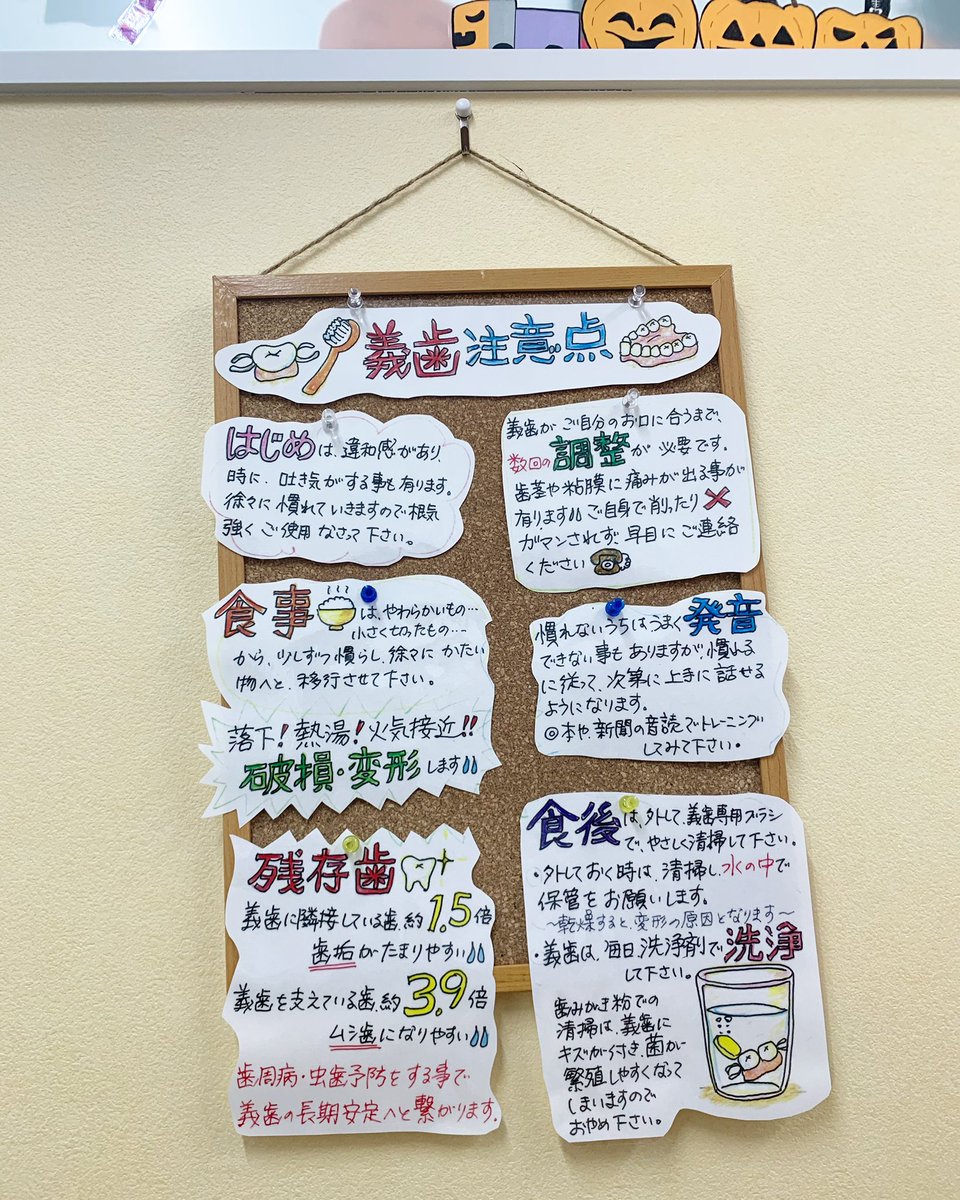 義歯注意点
はじめは、違和感があり、
時に、吐き気がする事も有ります。
徐々に慣れていきますので根気
強くご使用なさって下さい。
義歯がご自分のお口に合うまで、
数回の調整が必要です。
歯茎や粘膜に痛みが出る事が
有ります!!ご自身で削ったり×
ガマンされず、早目にご連絡
ください
食事は、やわらかいもの…
小さく切ったもの…
から、少しずつ慣らし、徐々にかたい
物へと、移行させて下さい。
落下!熱湯!火気接近!!
破損・変形します
慣れないうちはうまく発音
できない事もありますが、慣れる
に従って、次第に上手に話せる
ようになります。
◎本や新聞の音読でトレーニング
してみて下さい。
残存歯
義歯に隣接している歯、約1.5倍
歯垢がたまりやすい
義歯を支えている歯、約3.9倍
ムシ歯になりやすい
歯周病・虫歯予防をする事で
義歯の長期安定へと繋がります。
食後は、外して、義歯専用ブラシ
で、やさしく清掃して下さい。
・外しておく時は、清掃し、水の中で
保管をお願いします。
～乾燥すると、変形の原因となります～
・義歯は、毎日、洗浄剤で洗浄
して下さい。
歯みがき粉での
清掃は、義歯に
キズが付き、菌が
繁殖しやすくなって
しまいますので
おやめ下さい。